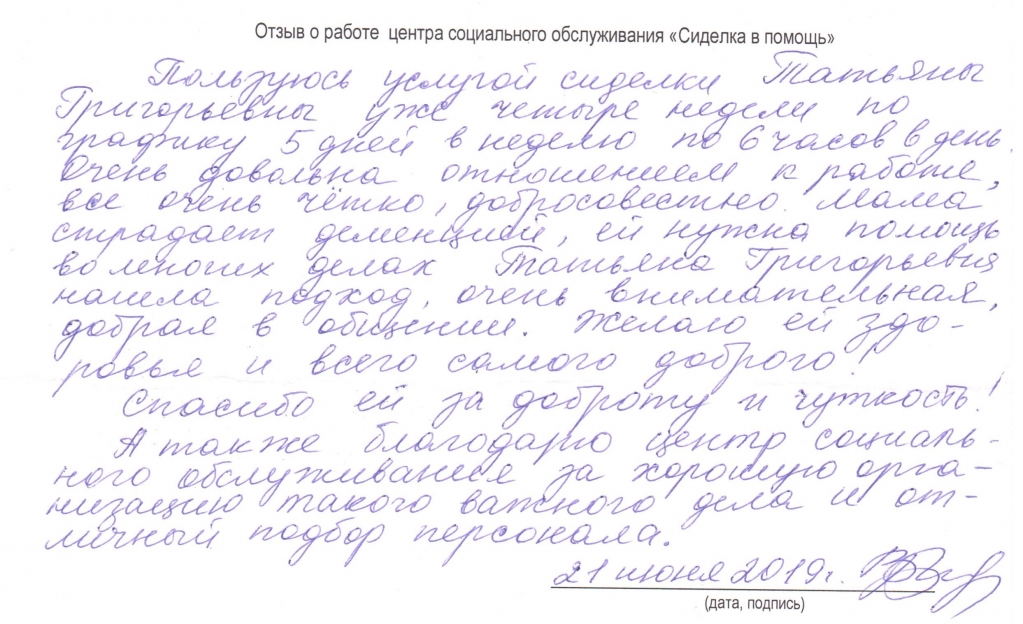 Отзыв о работе центра социального обслуживания «Сиделка в помощь»
Пользуюсь услугой сиделки Татьяны
Григорьевны уже четыре недели по
графику 5 дней в неделю по 6 часов в день.
Очень довольна отношением к работе,
все очень чётко, добросовестно. Мама
страдает деменцией, ей нужна помощь
во многих делах. Татьяна Григорьевна
нашла подход, очень внимательная,
добрая в общении. Желаю ей здо-
ровья и всего самого доброго!
Спасибо ей за доброту и чуткость!
А также благодарю центр социаль-
ного обслуживания за хорошую орга-
низацию такого важного дела и от-
личный подбор персонала.
21 июня 2019г.
(дата, подпись)